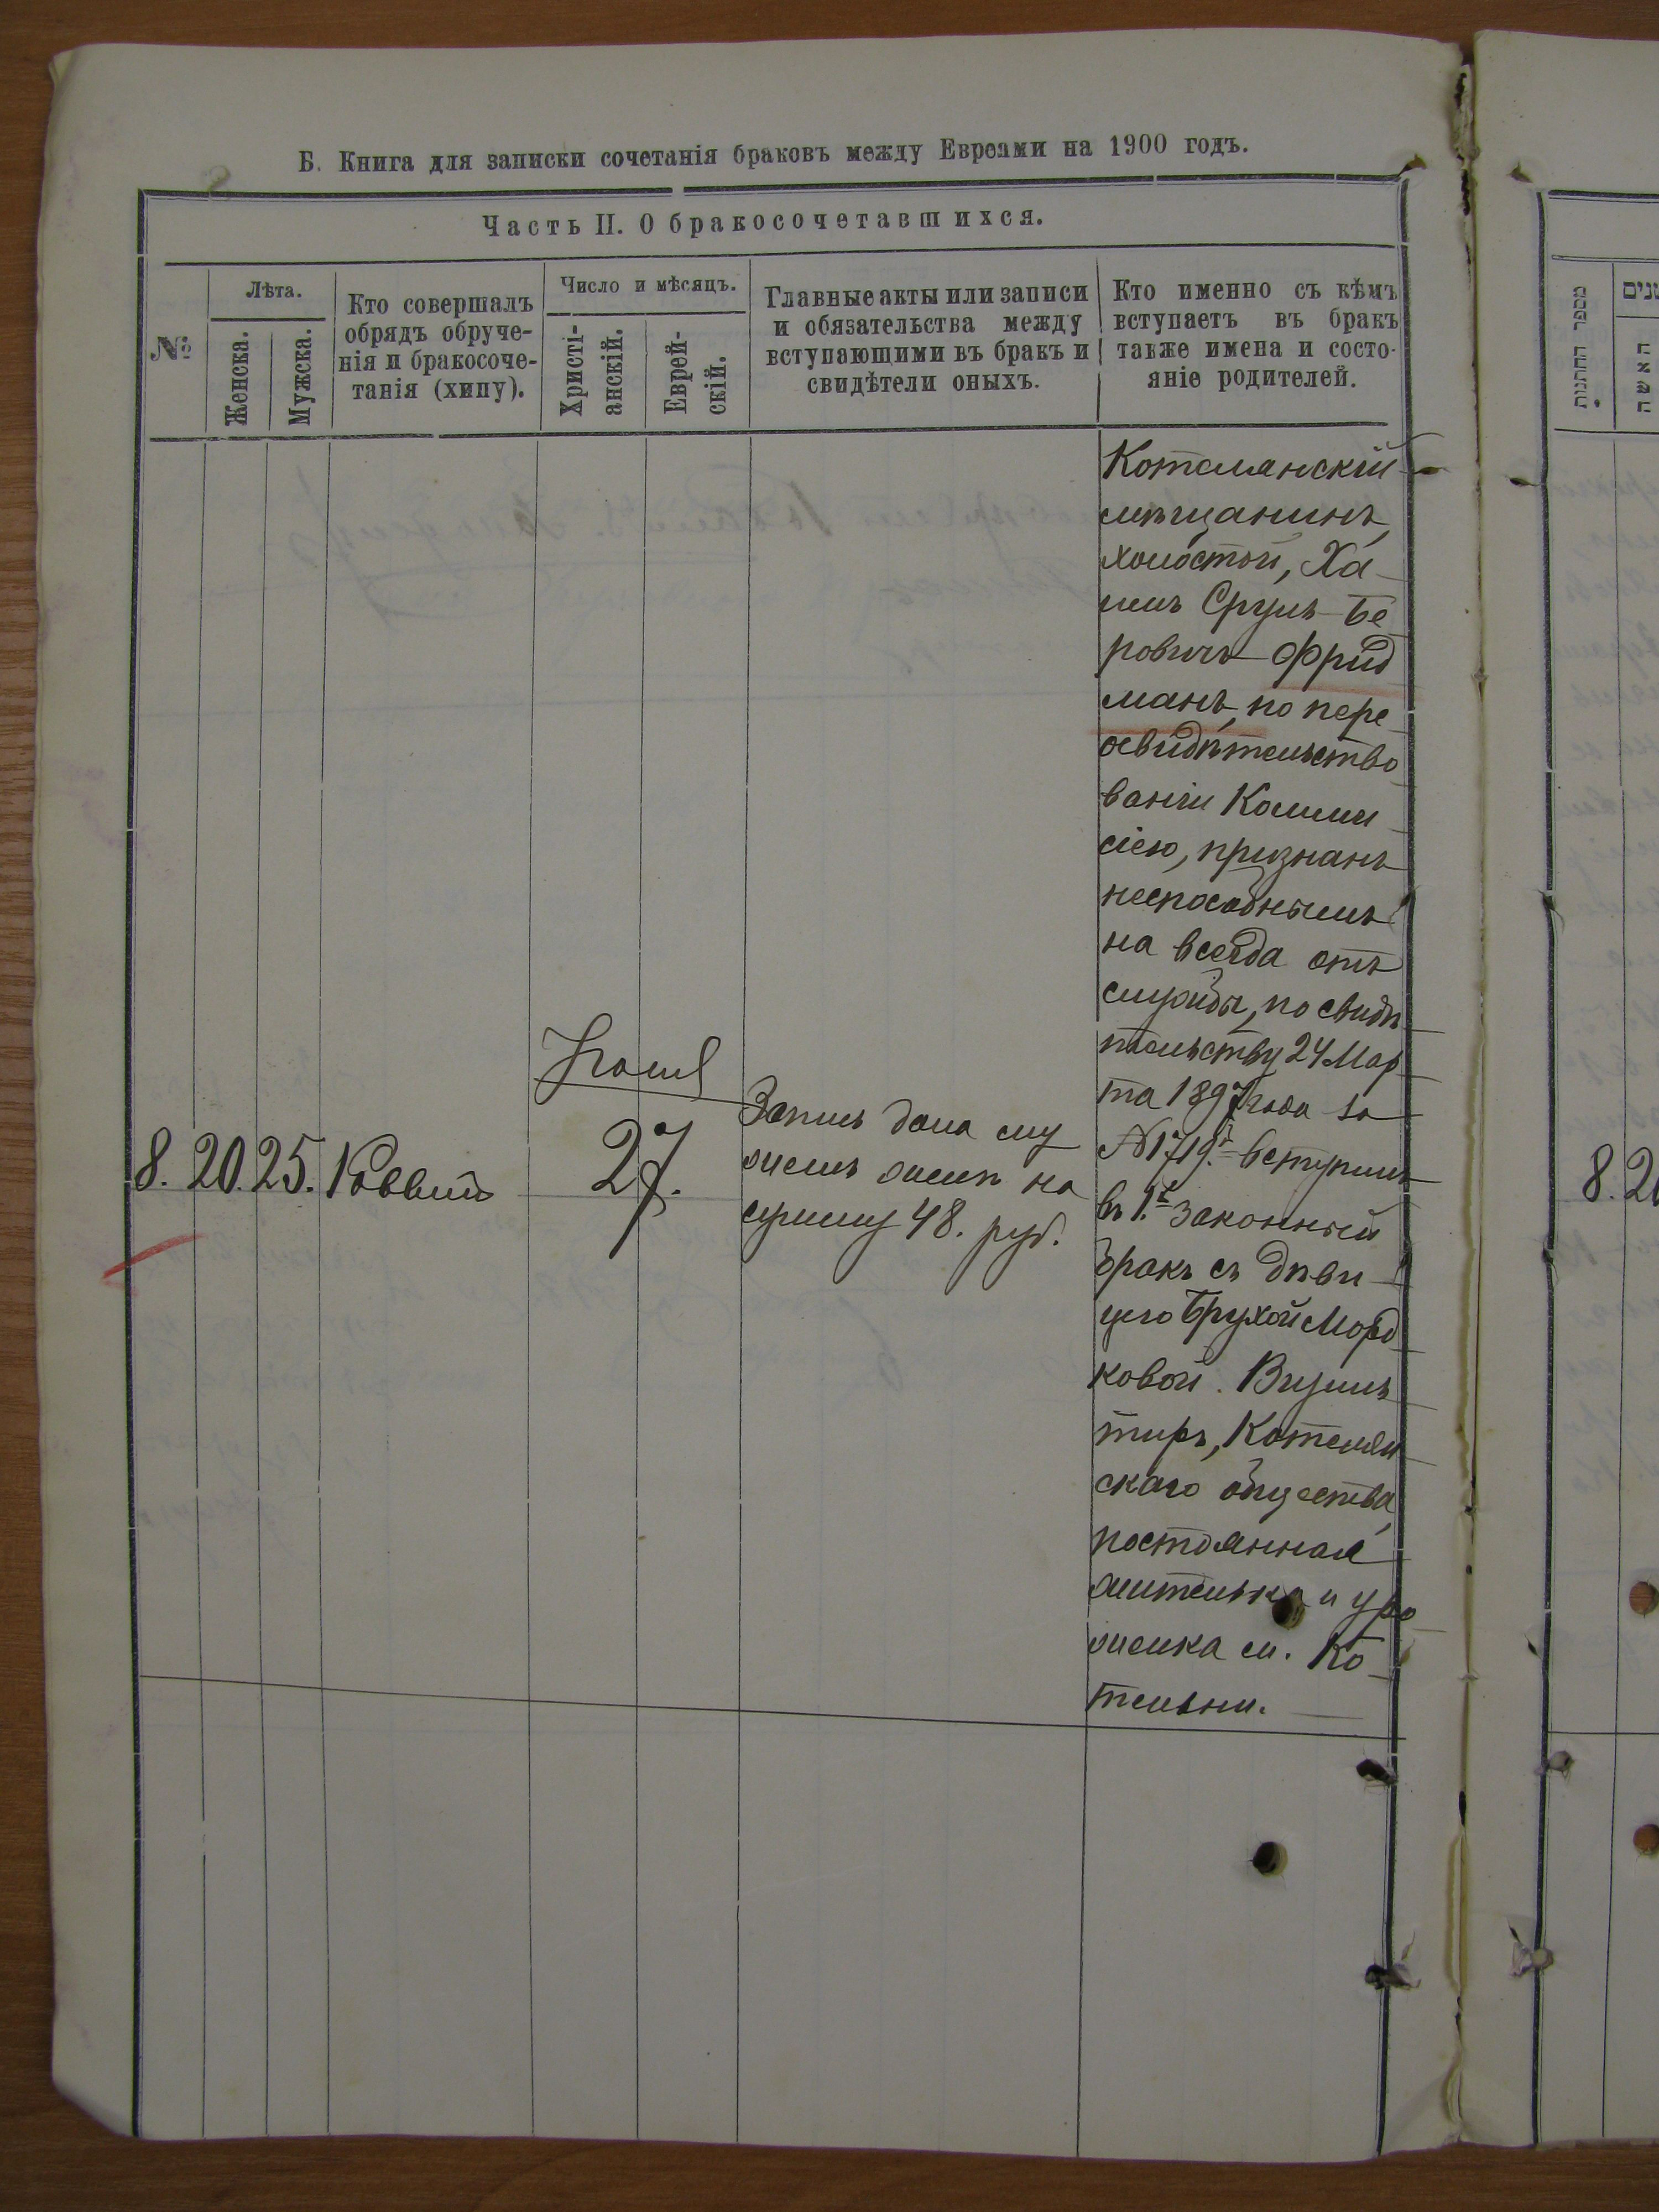 Б. Книга для записки сочетанія браковъ между Евреями на 1900 годъ.
Часть II. О бракосочетавшихся.
№
Лѣта.
Женска.
Мужска.
Кто совершалъ
обрядъ обруче-
нія и бракосоче-
танія (хипу).
Число и мѣсяцъ.
Христі-
анскій.
Еврей-
скій.
Главные акты или записи
и обязательства между
вступающими въ бракъ и
свидѣтели оныхъ.
Кто именно съ кѣмъ
вступаетъ въ бракъ
также имена и состо-
яніе родителей.
8. 20. 25. Раввинъ
27.
Запись дана му
жемъ женѣ на
сумму 48. руб.
Котелянскій
мѣщанинъ,
холостой, Ха-
имъ Сруль Бе
ровичъ Фрид
манъ, по пере
освидѣтельство
ваніи Комми
сіею, признанъ
неспособнымъ
на всегда отъ
службы, по свидѣ
тельству 24 Мар
та 1897 года за
№ 1719. вступилъ
въ 1.й законный
бракъ съ дѣви-
цею Брухой Морд
ковой
тиръ, Котелян
скаго общества,
постоянная
жителька и уро
женка м. Ко
тельни.
מספר החתנות
האשה
8. 2